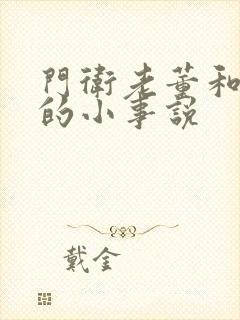 門衛老董和
的小事說
戴金